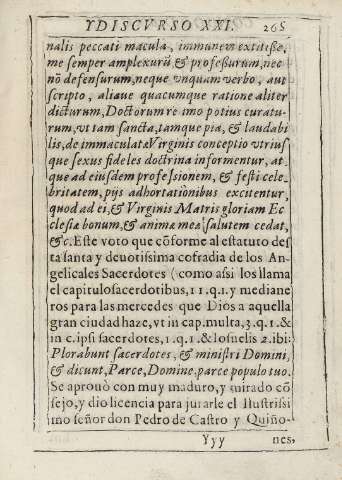 YDISCVRSO XXI. 265
nalis peccati macula, immunem extitiße,
me semper amplexurũ & profeßurum, nec
nõ defensurum, neque vnquam verbo, aut
scripto, aliave quacumque ratione aliter
dicturum, Doctorum re imo potius curatu-
rum, vt tam sancta, tamque pia, & laudabi
lis, de immaculata Virginis conceptio vtrius
que sexus fideles doctrina informentur, at-
que ad eiusdem profeſsionem, & festi cele-
britatem, pijs adhortationibus excitentur,
quod ad ei, & Virginis Matris gloriam Ec
clesiæ bonum, & animæ meæ salutem cedat,
&c. Este voto que cõforme al estatuto des
ta santa y deuotissima cofradia de los An-
gelicales Sacerdotes (como assi los llama
el capitulo sacerdotibus, 11.q.1. y mediane
ros para las mercedes que Dios a aquella
gran ciudad haze, vt in cap. multa, 3.q.1.&
in c. ipsi sacerdotes, 1.q.1.& Iosuelis 2. ibi:
Plorabunt sacerdotes, & ministri Domini,
& dicunt, Parce, Domine, parce populo tuo.
Se aprouò con muy maduro, y mirado cõ
sejo, y dio licencia para jurarle el Ilustrissi
mo señor don Pedro de Castro y Quiño-
Yyy nes,